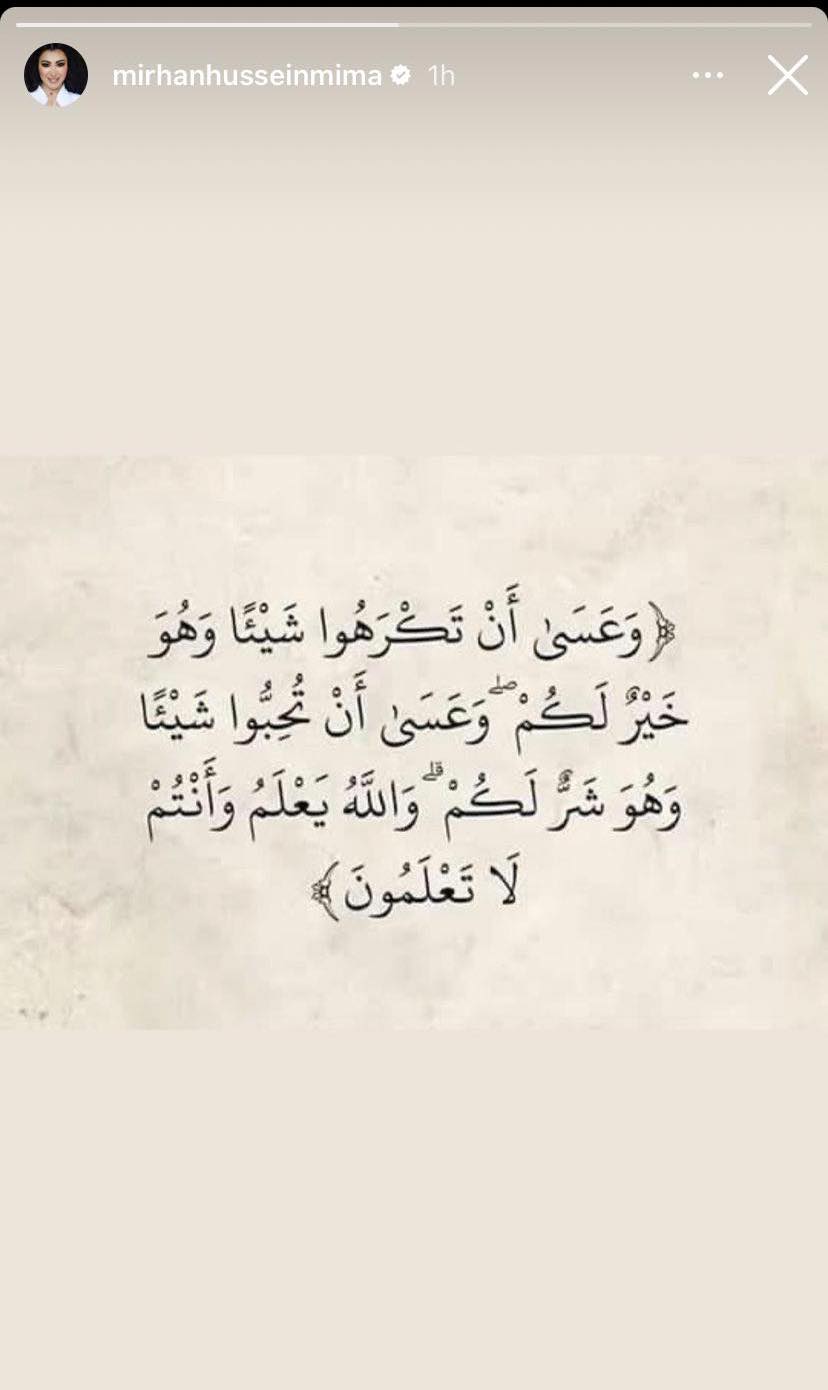 mirhanhusseinmima 1h
﴿وَعَسَىٰ أَنْ تَكْرَهُوا شَيْئًا وَهُوَ
خَيْرٌ لَكُمْ ۖ وَعَسَىٰ أَنْ تُحِبُّوا شَيْئًا
وَهُوَ شَرٌّ لَكُمْ ۗ وَاللَّهُ يَعْلَمُ وَأَنْتُمْ
لَا تَعْلَمُونَ﴾